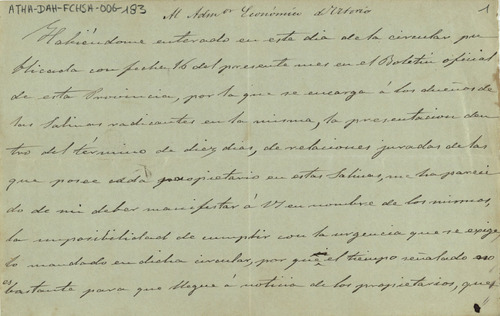 ATHA-DAH-FCHSA-006-183
1
Al Admor Económico d'Vitoria
Habiéndome enterado en este dia de la circular pu
blicada con fecha 16 del presente mes en el Boletin oficial
de esta Provincia, por la que se encarga á los dueños de
las Salinas radicantes en la misma, la presentacion den
tro del término de diez dias, de relaciones juradas de las
que posee cada propietario en estas Salinas, me ha pareci
do de mi deber manifestar á VI en nombre de los mismos,
la imposibilidad de cumplir con la urgencia que se exige
lo mandado en dicha circular, por que el tiempo señalado no
es bastante para que llegue á noticia de los propietarios, que,